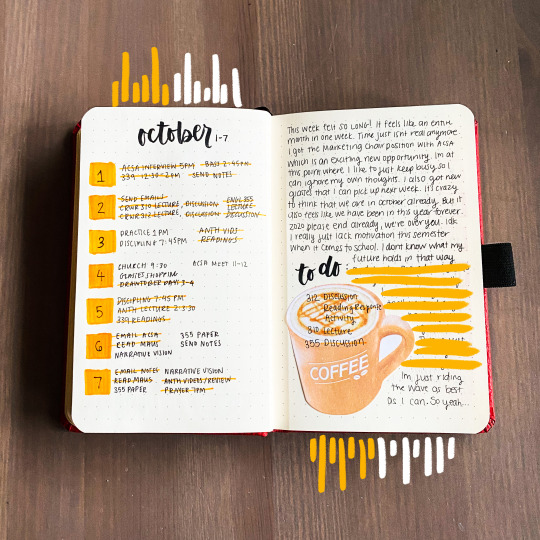 october 1-7
1
ACSA INTERVIEW 5PM
339 12:30-2PM SEND NOTES
2
SEND EMAILS
CRWR 310 LECTURE, DISCUSSION
CRWR 312 LECTURE, DISCUSSION
ENGL 355
LECTURE,
DISCUSSION
3
PRACTICE 1 PM
DISCIPLINE 7:45PM
ANTH VIDS
READINGS
4
CHURCH 9:30 ACSA MEET 11-12
GLASSES SHOPPING
DRAWTOBER DAYS 3-4
5
DISCIPLING 7:45 PM
ANTH LECTURE 2-3:30
339 READINGS
6
EMAIL ACSA 355 PAPER
READ MAUS SEND NOTES
NARRATIVE VISION
7
EMAIL NOTES NARRATIVE VISION
READ MAUS ANTH VIDEOS/REVIEW
355 PAPER PRAYER 7PM
This week felt so LONG! It feels like an entire
month in one week. Time just isnt real anymore.
I got the Marketing Chair position with ACSA
which is an exciting new opportunity. Im at
this point where I like to just keep busy so I
can ignore my own thoughts. I also got new
glasses that I can pick up next week. It's crazy
to think that we are in october already. But it
also feels like we have been in this year forever.
2020 please end already, we're over you. Idk
I really just lack motivation this semester
when it comes to school. I dont know what my
future holds in that way
to do
312 Discussion
Reading Response
Activity
310 Lecture
355 Discussion
COFFEE
Im just riding
the wave as best
as I can. So yeah...